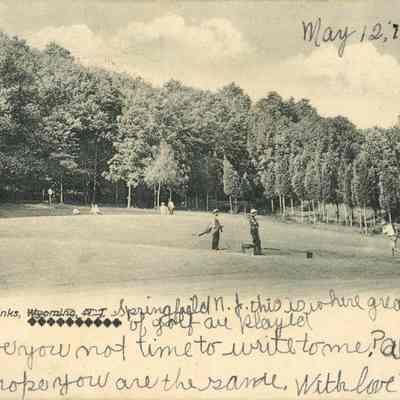 May 12,
nks, Wyoming, N. J. Springfield N. J. this is where grea
of golf are played
e you not time to write to me. Pa
hope you are the same. With love